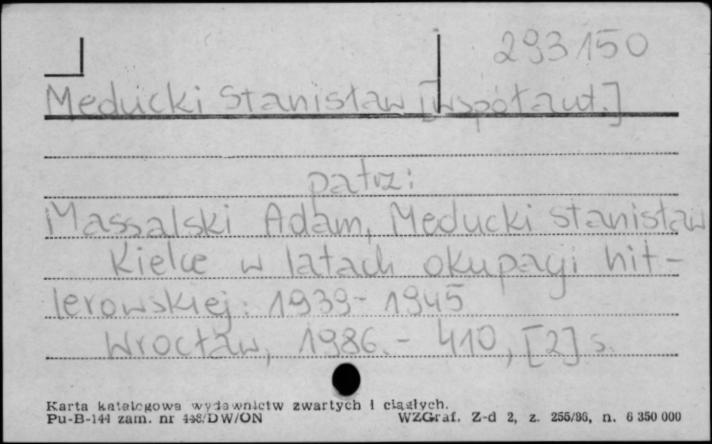 293150
Meducki Stanisław [współaut.]
patrz:
Massalski Adam, Meducki Stanisław
Kielce w latach okupacji hit-
lerowskiej: 1939-1945
Wrocław, 1986.- 410, [2] s.
Karta katalogowa wydawnictw zwartych i ciągłych.
Pu-B-144 zam. nr /DW/ON WZGraf. Z-d 2, z. 255/86, n. 6 350 000